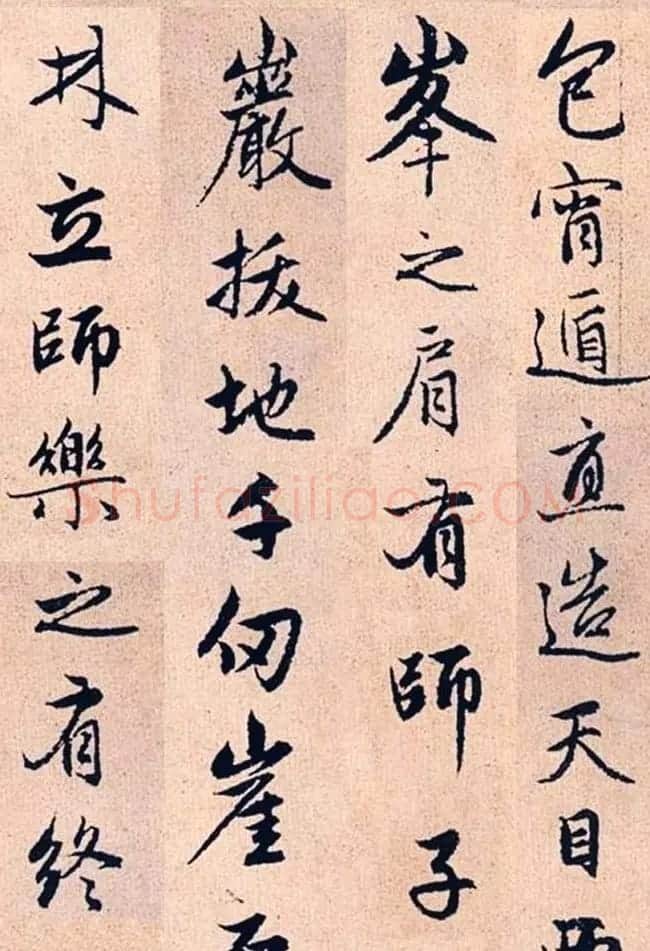 包宵遁直造天目師
峯之肩有師子
巖拔地千仞崖
林立師樂之有終
shufaziliao.COM